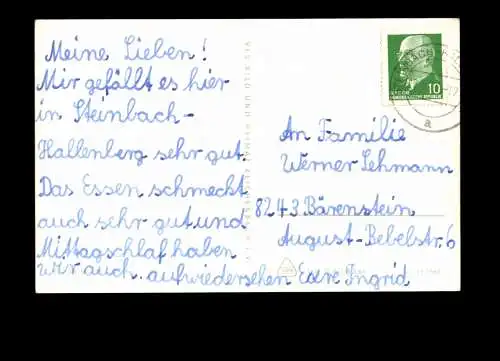 Meine Lieben!
Mir gefällt es hier
in Steinbach-
Hallenberg sehr gut.
Das Essen schmeckt
auch sehr gut und
Mittagschlaf haben
wir auch. aufwiedersehen Eure Ingrid
An Familie
Werner Lehmann
8243 Bärenstein
August-Bebelstr. 6
10
a